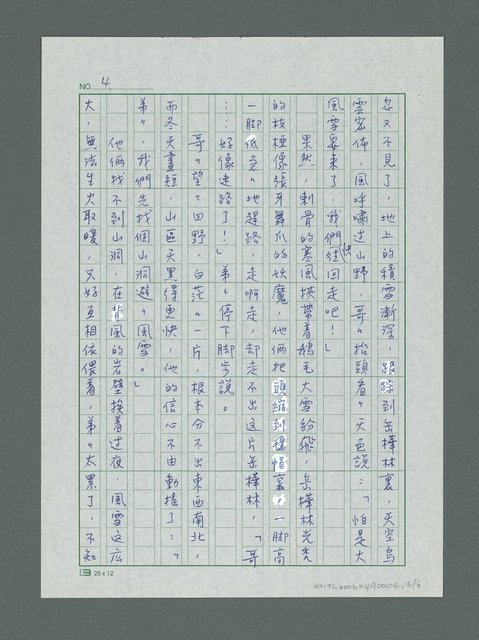 NO. 4.
忽又不見了，地上的積雪漸深，跟踪到岳樺林裏，天空烏
雲密佈，風呼嘯过山野，哥〃抬頭看〃天色說：「怕是大
風雪要來了，我們快回走吧！」
果然，刺骨的寒風挾帶着鵝毛大雪紛飛，岳樺林光禿
的枝椏像張牙舞爪的妖魔，他俩把頭縮到穠帽裏，一脚高
一脚低急〃地趕路，走啊走，却走不出这片岳樺林，「哥
：：好像迷路了！」弟〃停下脚步說。
哥〃望〃田野，白茫〃一片，根本分不出東西南北，
而冬天晝短，山區天黑得更快，他的信心不由動搖了：「
弟〃，我們先找個山洞避〃風雪。」
他俩找不到山洞，在背風的岩壁挨着过夜，風雪这広
大，無法生火取暖，只好互相依偎着，弟〃太累了，不知
25 x 12
NMTL20060490004, 4/6